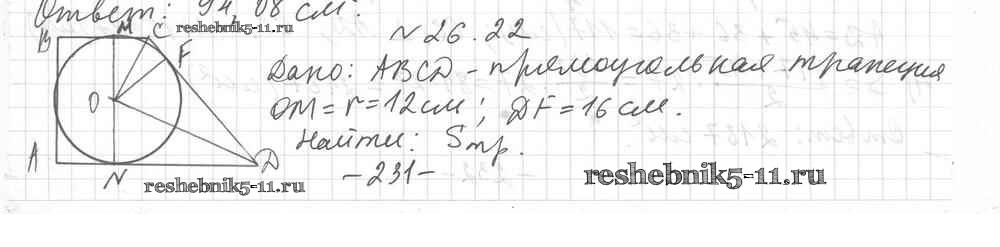 Ответ: 94,08 см².
reshebnik5-11.ru
B M C F
O
A N D
№26.22
Дано: ABCD - прямоугольная трапеция
OM = r = 12 см; DF = 16 см.
Найти: Sтр.
-231-
reshebnik5-11.ru
reshebnik5-11.ru